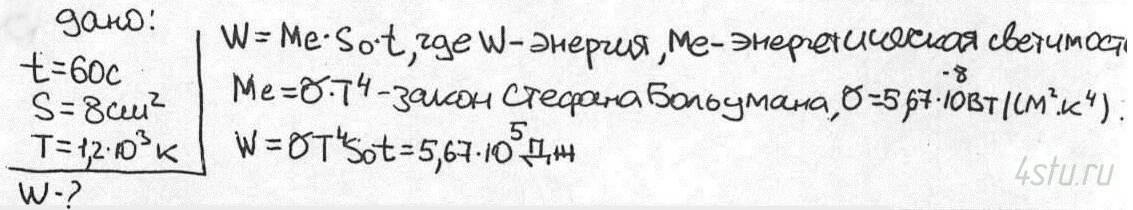 дано:
t=60с
S=8см²
T=1,2·10³ К
W-?
W=Me·S₀·t, где W-энергия, Me-энергетическая светимост
Me=σ·T⁴-закон Стефана Больцмана, σ=5,67·10⁻⁸Вт/(м²·К⁴).
W=σT⁴S₀t=5,67·10⁵Дж
4stu.ru